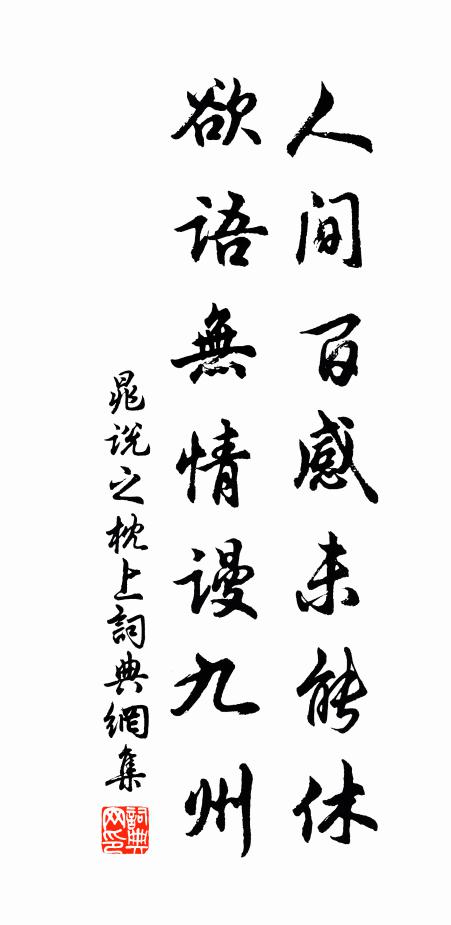 人间百感未能休
欲语無情谩九州
晁说之枕上詞典網集
詞典網印